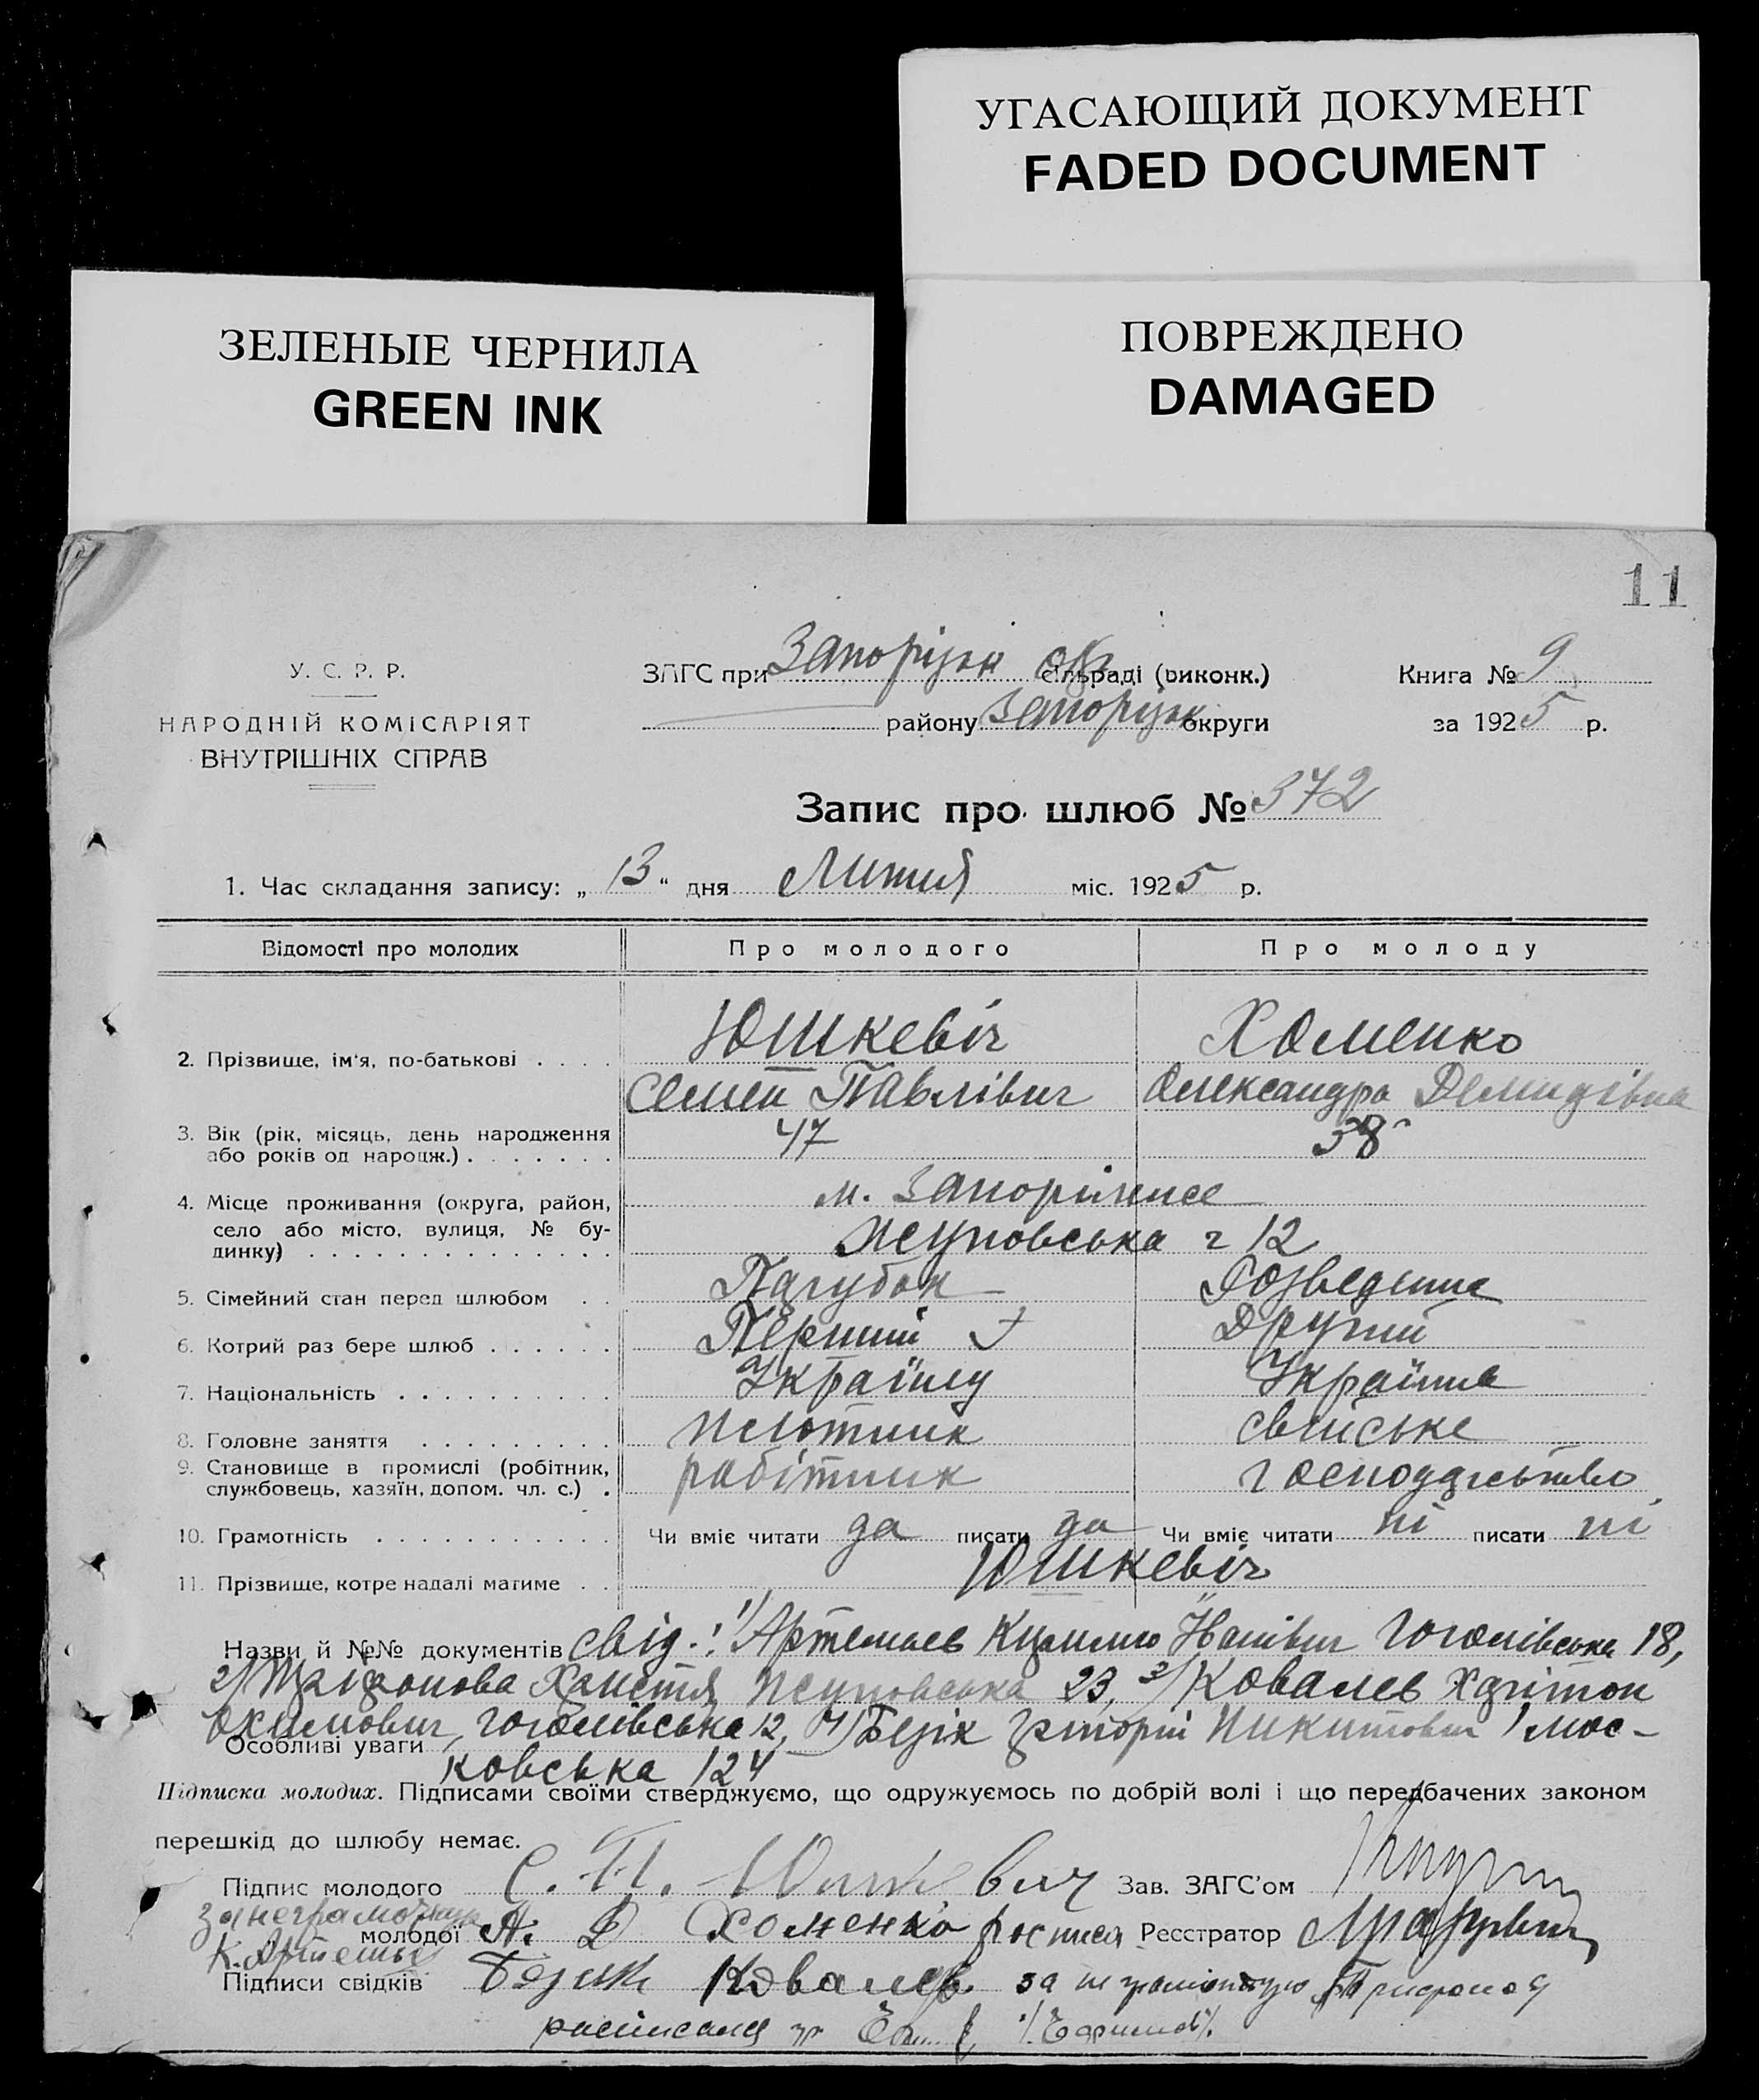 УГАСАЮЩИЙ ДОКУМЕНТ
FADED DOCUMENT
ЗЕЛЕНЫЕ ЧЕРНИЛА
GREEN INK
ПОВРЕЖДЕНО
DAMAGED
11
У. С. Р. Р.
НАРОДНІЙ КОМІСАРІЯТ
ВНУТРІШНІХ СПРАВ
ЗАГС при Запорізьк окр сільраді (виконк.)
району Запорізьк округи
Книга № 9
за 1925 р.
Запис про шлюб № 372
1. Час складання запису: „13“ дня Липня міс. 1925 р.
Відомості про молодих Про молодого Про молоду
2. Прізвище, ім'я, по-батькові . . . . Юшкевіч Хоменко
Семен Павлівич Олександра Демидівна
3. Вік (рік, місяць, день народження або років од народж.) . . . . . . . 47 38
4. Місце проживання (округа, район, село або місто, вулиця, № будинку) . . . . . . . . . . . . . . м. Запоріжжє
Жуповська 12
5. Сімейний стан перед шлюбом . . Парубок Розведена
6. Котрий раз бере шлюб . . . . . . Перший Другий
7. Національність . . . . . . . . . . Україн
8. Головне заняття . . . . . . . . . плотник свійське
9. Становище в промислі (робітник, службовець, хазяїн, допом. чл. с.) . робітник господарство
10. Грамотність . . . . . . . . . . . Чи вміє читати да писати да Чи вміє читати ні писати ні
11. Прізвище, котре надалі матиме . . Юшкевіч
Назви й №№ документів свід.: 1/ Артемьев Іванівич Гоголівська 18,
2/ Христя Жуповська 23, 3/ Ковалев Харітон
Охимович, гоголівська 12, 4/ Безік Григорій Никитович Мос-
Особливі уваги ковська 124
Підписка молодих. Підписами своїми стверджуємо, що одружуємось по добрій волі і що передбачених законом
перешкід до шлюбу немає.
Підпис молодого С. П. Юшкевич Зав. ЗАГС'ом
за неграмотную
молодої А. Д Хоменко Реєстратор
К. Артемьев
Підписи свідків Безик Ковалев за